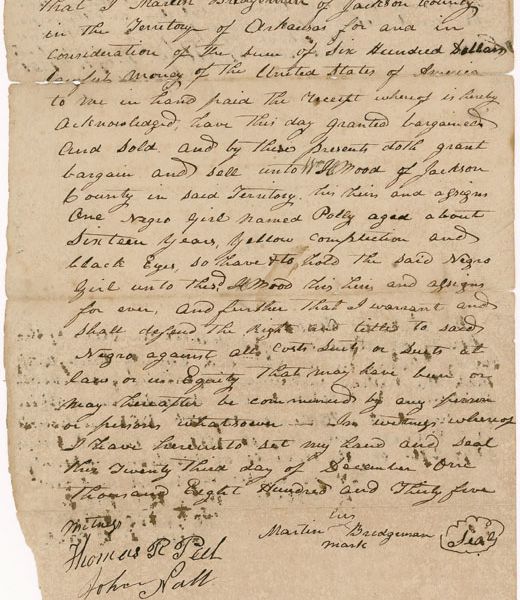 that I Martin Bridgeman of Jackson County
in the Territory of Arkansas for and in
consideration of the sum of Six Hundred Dollars
lawful money of the United States of America
to me in hand paid the receipt whereof is hereby
acknowledged, have this day granted bargained
and sold and by these presents doth grant
bargain and sell unto Wood of Jackson
County in said Territory his heirs and assigns
One Negro Girl named Polly aged about
Sixteen Years, Yellow complection and
black Eyes, so have & to hold the said Negro
Girl unto the sd Wood his heirs and assigns
for ever, and further that I warrant and
shall defend the Right and title to said
Negro against all costs Suits or Suits at
law or in Equity that may have been or
may hereafter be commenced by any person
or persons whatsown – In witness whereof
I have hereunto set my hand and seal
this Twenty third day of December One
thousand Eight Hundred and Thirty five
Witness
his
Martin Bridgeman Seal
mark
Thomas R
John